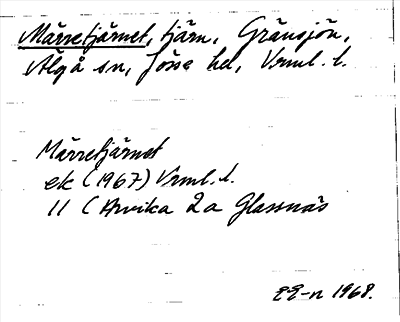 Märretjärnet, tjärn, Gränsjön,
Älgå sn, Jösse hd, Vrml. l.
Märretjärnet
ek (1967) Vrml. l.
11 C Arvika 2a Glassnäs
EE-n 1968.